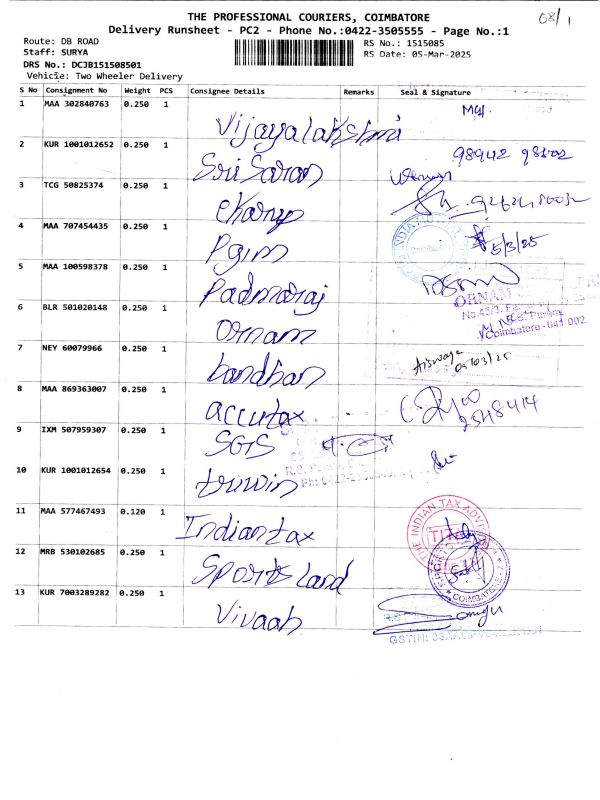 08/1
THE PROFESSIONAL COURIERS, COIMBATORE
Delivery Runsheet - PC2 - Phone No.:0422-3505555 - Page No.:1
Route: DB ROAD
Staff: SURYA
DRS No.: DCJB151508501
Vehicle: Two Wheeler Delivery
RS No.: 1515085
RS Date: 05-Mar-2025
S No Consignment No Weight PCS Consignee Details Remarks Seal & Signature
1 MAA 302840763 0.250 1 Vijayalakshmi
2 KUR 1001012652 0.250 1 Sri Saran 98942
3 TCG 50825374 0.250 1
4 MAA 707454435 0.250 1 Pgim 5/3/25
5 MAA 100598378 0.250 1 Padmaraj
ORNAM
6 BLR 501020148 0.250 1 Ornam
Coimbatore - 641 002
7 NEY 60079966 0.250 1 bandhan 05/03/25
8 MAA 869363007 0.250 1 accutax 2548414
9 IXM 507959307 0.250 1 SGTS
10 KUR 1001012654 0.250 1
11 MAA 577467493 0.120 1 Indian tax
THE INDIAN TAX
12 MRB 530102685 0.250 1 Sports Land
COIMBATORE
13 KUR 7003289282 0.250 1 Vivaah
GSTIN: